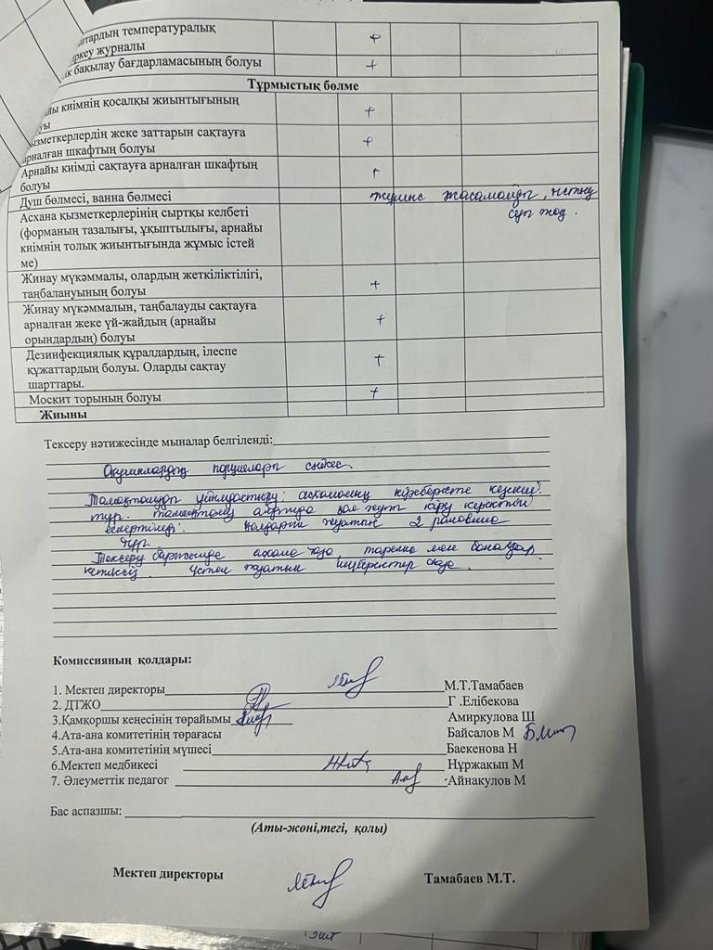 птардың температуралық
ркеу журналы +
ік бақылау бағдарламасының болуы +
Тұрмыстық бөлме
йы киімнің қосалқы жиынтығының
уы +
қызметкерлердің жеке заттарын сақтауға
арналған шкафтың болуы +
Арнайы киімді сақтауға арналған шкафтың
болуы +
Душ бөлмесі, ванна бөлмесі жасамайды,
Асхана қызметкерлерінің сыртқы келбеті суы жоқ.
(форманың тазалығы, ұқыптылығы, арнайы
киімнің толық жиынтығында жұмыс істей
ме)
Жинау мүкәммалы, олардың жеткіліктілігі,
таңбалануының болуы +
Жинау мүкәммалын, таңбалауды сақтауға
арналған жеке үй-жайдың (арнайы +
орындардың) болуы
Дезинфекциялық құралдардың, ілеспе
құжаттардың болуы. Оларды сақтау +
шарттары.
Москит торының болуы +
Жиыны
Тексеру нәтижесінде мыналар белгіленді:
Оқушылардың порциялары сәйкес.
Тамақтануды ұйымдастыру: асхананың
тұр. алдында қол жуу керектігі
ескертілді. 2 раковина
тұр.
Тексеру барысында асхана таза, тарелка мен
таза.
Комиссияның қолдары:
1. Мектеп директоры М.Т.Тамабаев
2. ДТЖО Г .Елібекова
3.Қамқоршы кеңесінің төрайымы Амиркулова Ш
4.Ата-ана комитетінің төрағасы Байсалов М
5.Ата-ана комитетінің мүшесі Баекенова Н
6.Мектеп медбикесі Нұржакып М
7. Әлеуметтік педагог Айнакулов М
Бас аспазшы:
(Аты-жөні,тегі, қолы)
Мектеп директоры Тамабаев М.Т.